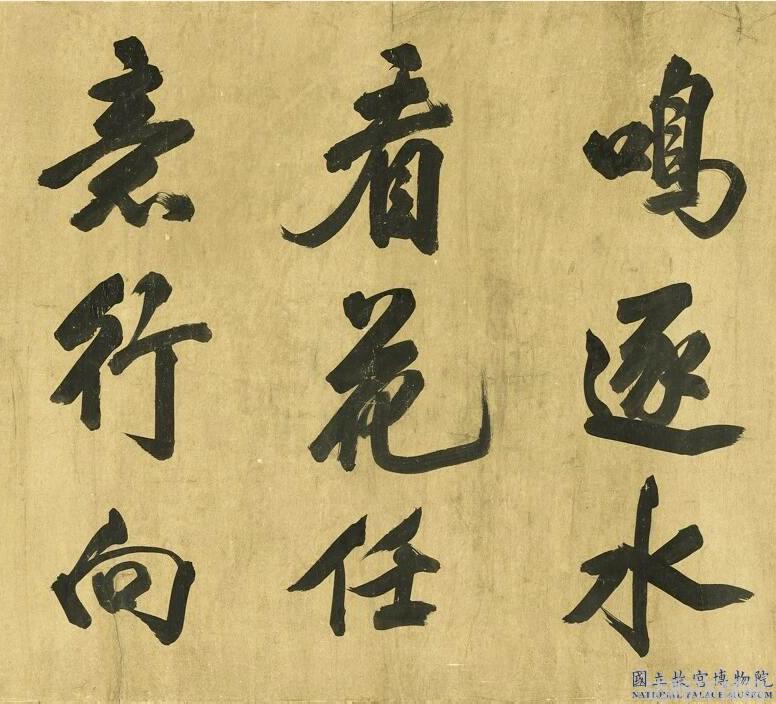 鳴逐水
看花任
意行向
國立故宮博物院
NATIONAL PALACE MUSEUM